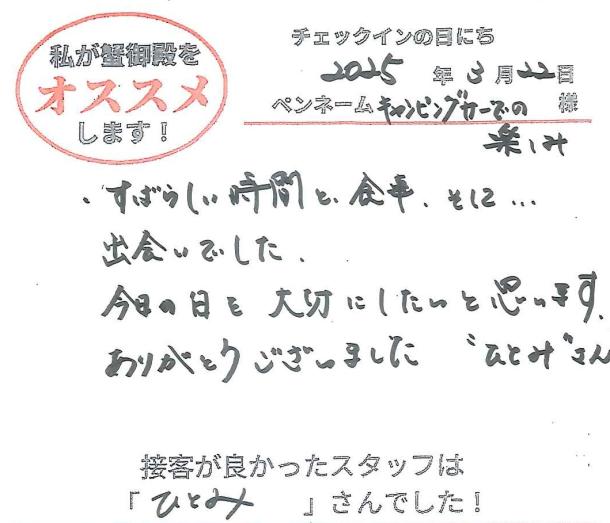 私が蟹御殿を
オススメ
します！
チェックインの日にち
2025年3月22日
ペンネーム キャンピングカーでの 様
楽しみ
・すばらしい時間と、食事、そして…
出会いでした。
今日の日を大切にしたいと思います。
ありがとうございました "ひとみ"さん
接客が良かったスタッフは
「ひとみ」さんでした！